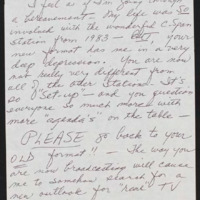 I feel as if I'm going through
a bereavement. My life was so
involved with the wonderful C-Span
Station from 1983 — BUT, your
new format has me in a very
deep depression. You are now
not really very different from
all of the other Stations. It's
so "set up" — and you question
everyone so much more with
more "agenda's" on the table —
PLEASE go back to your
OLD format!! — The way you
are now broadcasting will cause
me to somehow search for a
new outlook for "real" TV